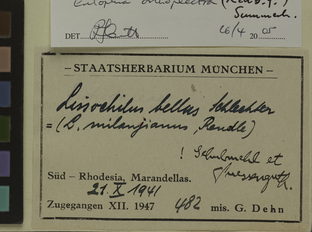 Eulophia orthoplectra (Rchb.f.)
Summerh.
DET. 26/4 2005
– STAATSHERBARIUM MÜNCHEN –
Lissochilus bellus Schlechter
= (L. milanjianus, Rendle)
! Schubnichl et
Süd – Rhodesia, Marandellas.
21. X 1941
Zugegangen XII. 1947 482 mis. G. Dehn